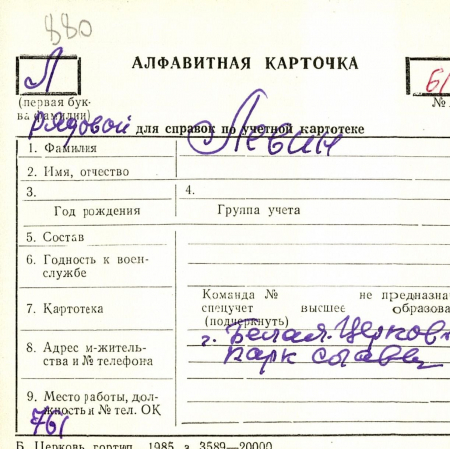 880
Л АЛФАВИТНАЯ КАРТОЧКА 6/
(первая бук-
ва фамилии) №
рядовой для справок по учетной картотеке
1. Фамилия Левин
2. Имя, отчество
3. 4.
Год рождения Группа учета
5. Состав
6. Годность к воен-
службе
7. Картотека Команда № не предназна
спецучет высшее образова
(подчеркнуть)
8. Адрес м-житель-
ства и № телефона г. Белая-Церковь
парк
9. Место работы, дол-
жность и № тел. ОК
761
Б. Церковь гортип. 1985 з. 3589—20000